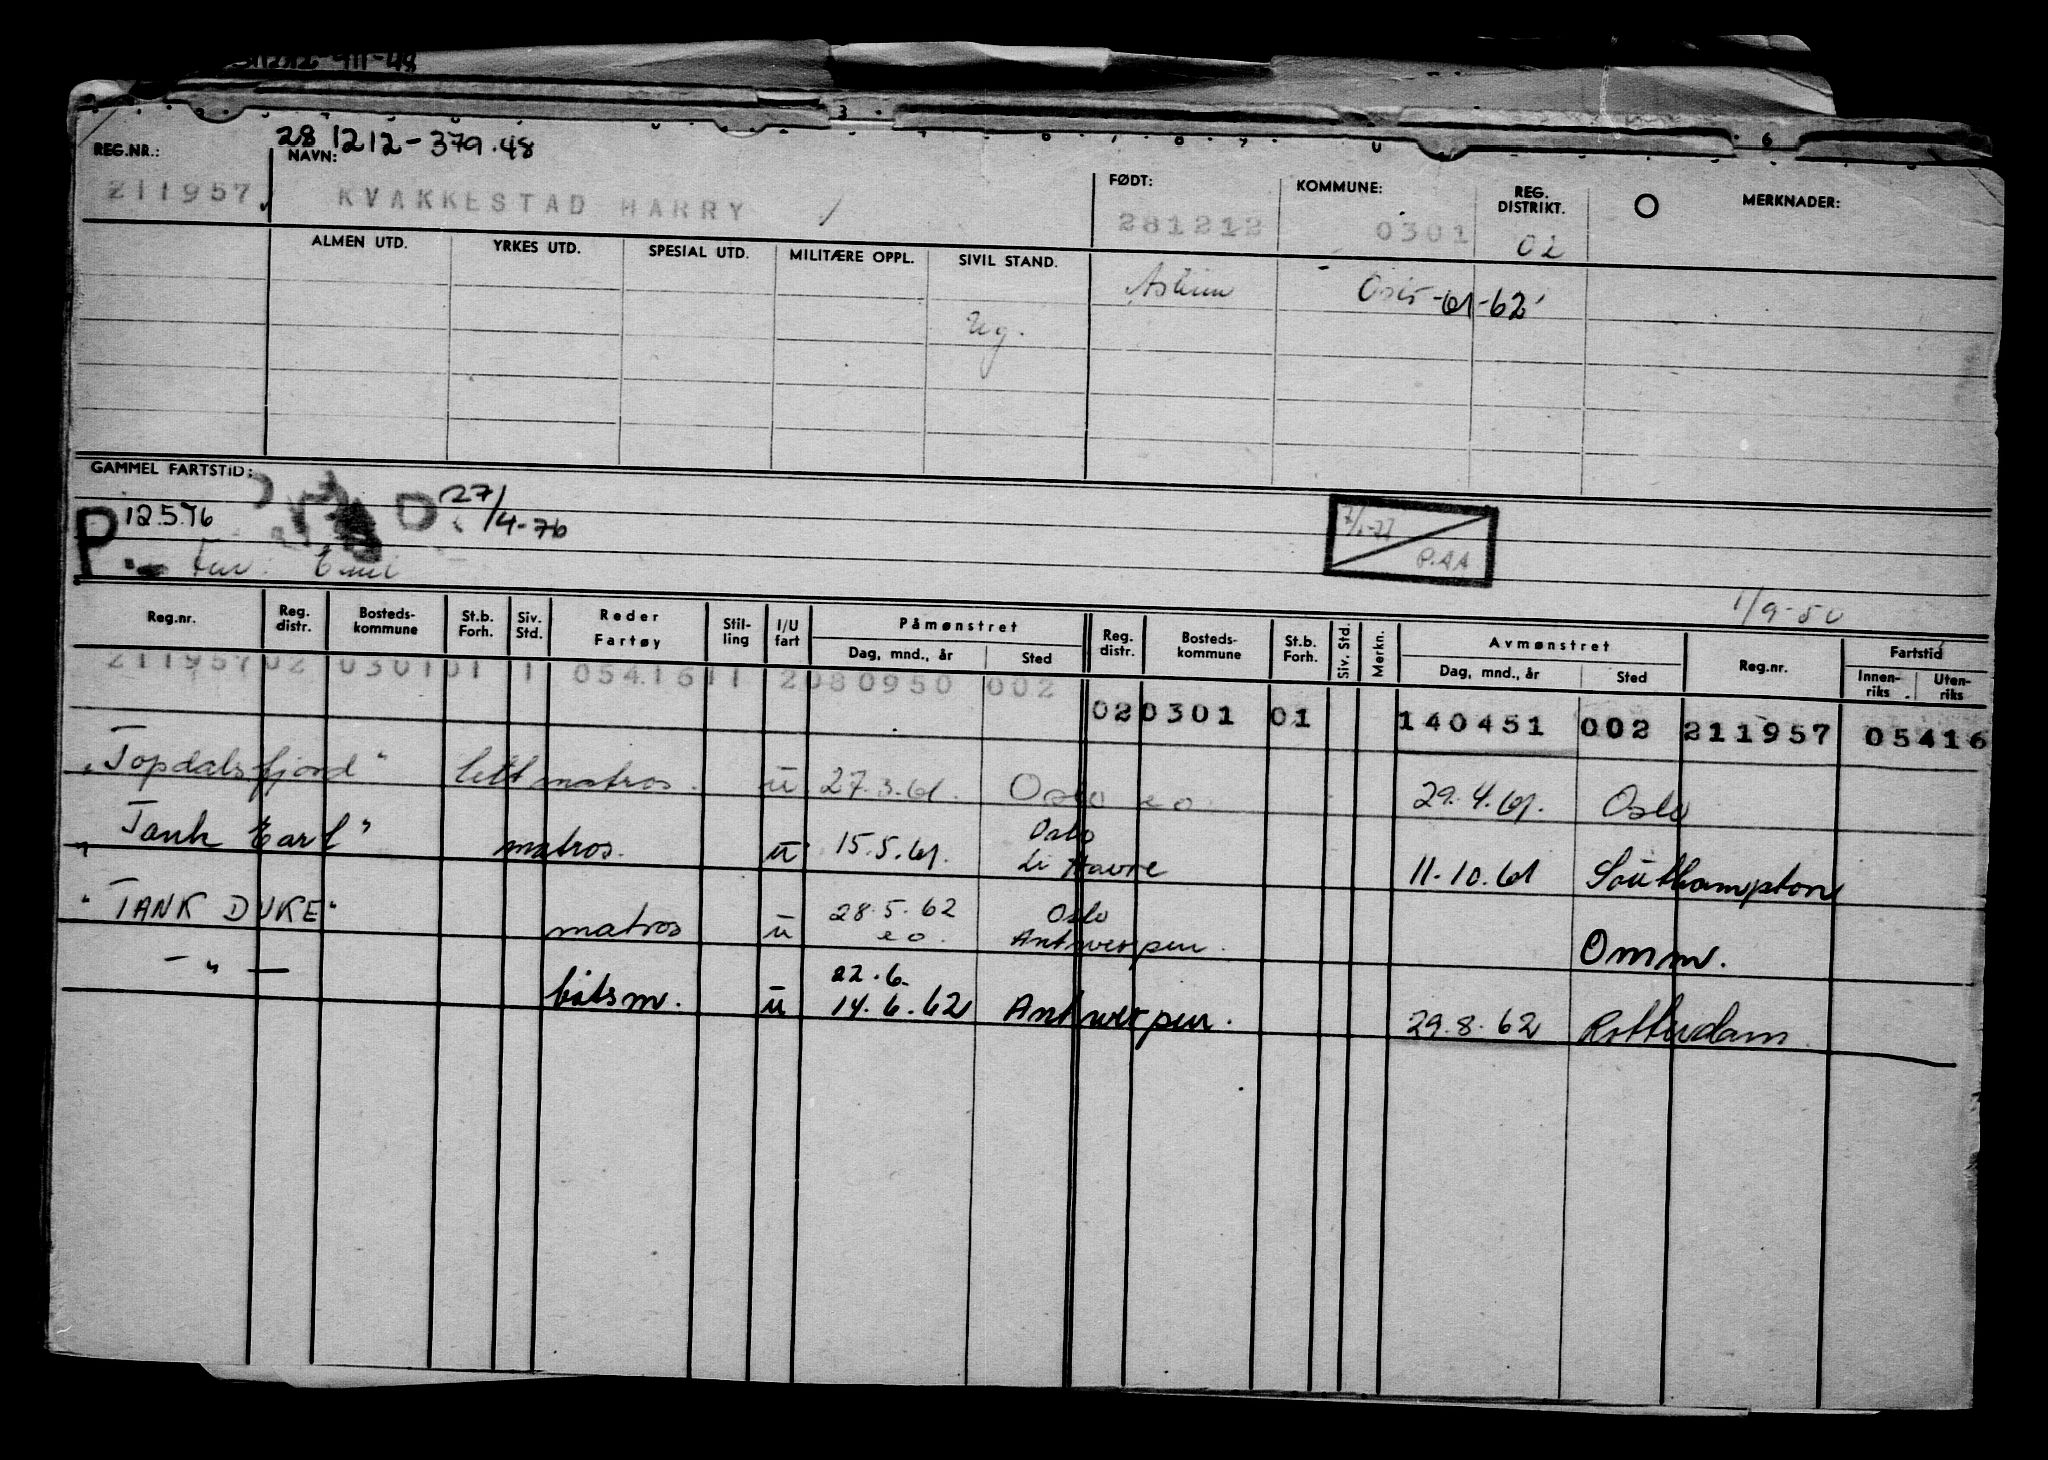 28 1212-379.48
REG.NR.: NAVN: FØDT: KOMMUNE: REG. DISTRIKT. MERKNADER:
211957 KVAKKESTAD HARRY / 281212 0301 02
ALMEN UTD. YRKES UTD. SPESIAL UTD. MILITÆRE OPPL. SIVIL STAND.
Askim Oslo-61-62
Ug.
GAMMEL FARTSTID:
P 12.5.76 D 27/4-76
P.AA
1/9-50
Reg.nr. Reg. distr. Bosteds-kommune St.b. Forh. Siv. Std. Reder Fartøy Stil-ling I/U fart Påmønstret Dag, mnd., år Sted Reg. distr. Bosteds-kommune St.b. Forh. Siv. Std. Merkn. Avmønstret Dag, mnd., år Sted Reg.nr. Fartstid Innen-riks Uten-riks
211957 02 0301 01 1 0541611 2 080950 002
02 0301 01 140451 002 211957 05416
"Topdalsfjord" lettmatros. u 27.3.61. Oslo eo 29.4.61. Oslo
"Tank Earl" matros. u 15.5.61. Oslo Le Havre 11.10.61 Southampton
"TANK DUKE" matros u 28.5.62 eo. Oslo Antwerpen. Omm.
- " - båtsm. u 22.6. 14.6.62 Antwerpen. 29.8.62 Rotterdam.